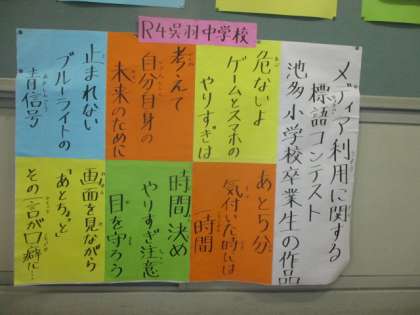 R4呉羽中学校
メディア利用に関する
標語コンテスト
池多小学校卒業生の作品
危ないよ
ゲームとスマホの
やりすぎは
考えて
自分自身の
未来のために
止まれない
ブルーライトの
青信号
あと5分
気付いた時には
1時間
時間決め
やりすぎ注意
目を守ろう
画面を見ながら
「あとちょっと」
その一言が口癖に…